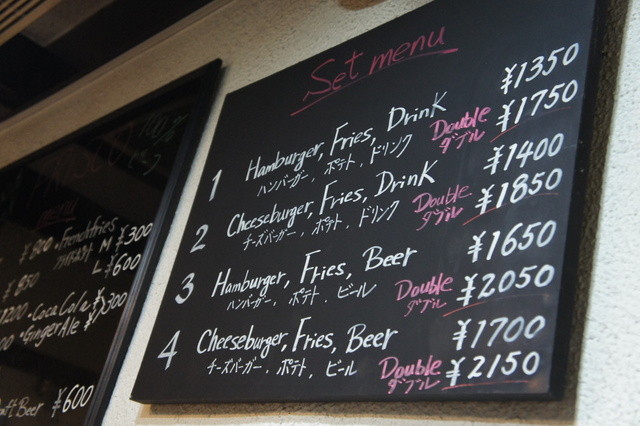 Set menu
1 Hamburger, Fries, Drink ¥1350
ハンバーガー, ポテト, ドリンク Double ダブル ¥1750
2 Cheeseburger, Fries, Drink ¥1400
チーズバーガー, ポテト, ドリンク Double ダブル ¥1850
3 Hamburger, Fries, Beer ¥1650
ハンバーガー, ポテト, ビール Double ダブル ¥2050
4 Cheeseburger, Fries, Beer ¥1700
チーズバーガー, ポテト, ビール Double ダブル ¥2150
menu
Frenchfries
M ¥300
L ¥600
•Coca Cola ¥300
•Ginger Ale
Beer ¥600